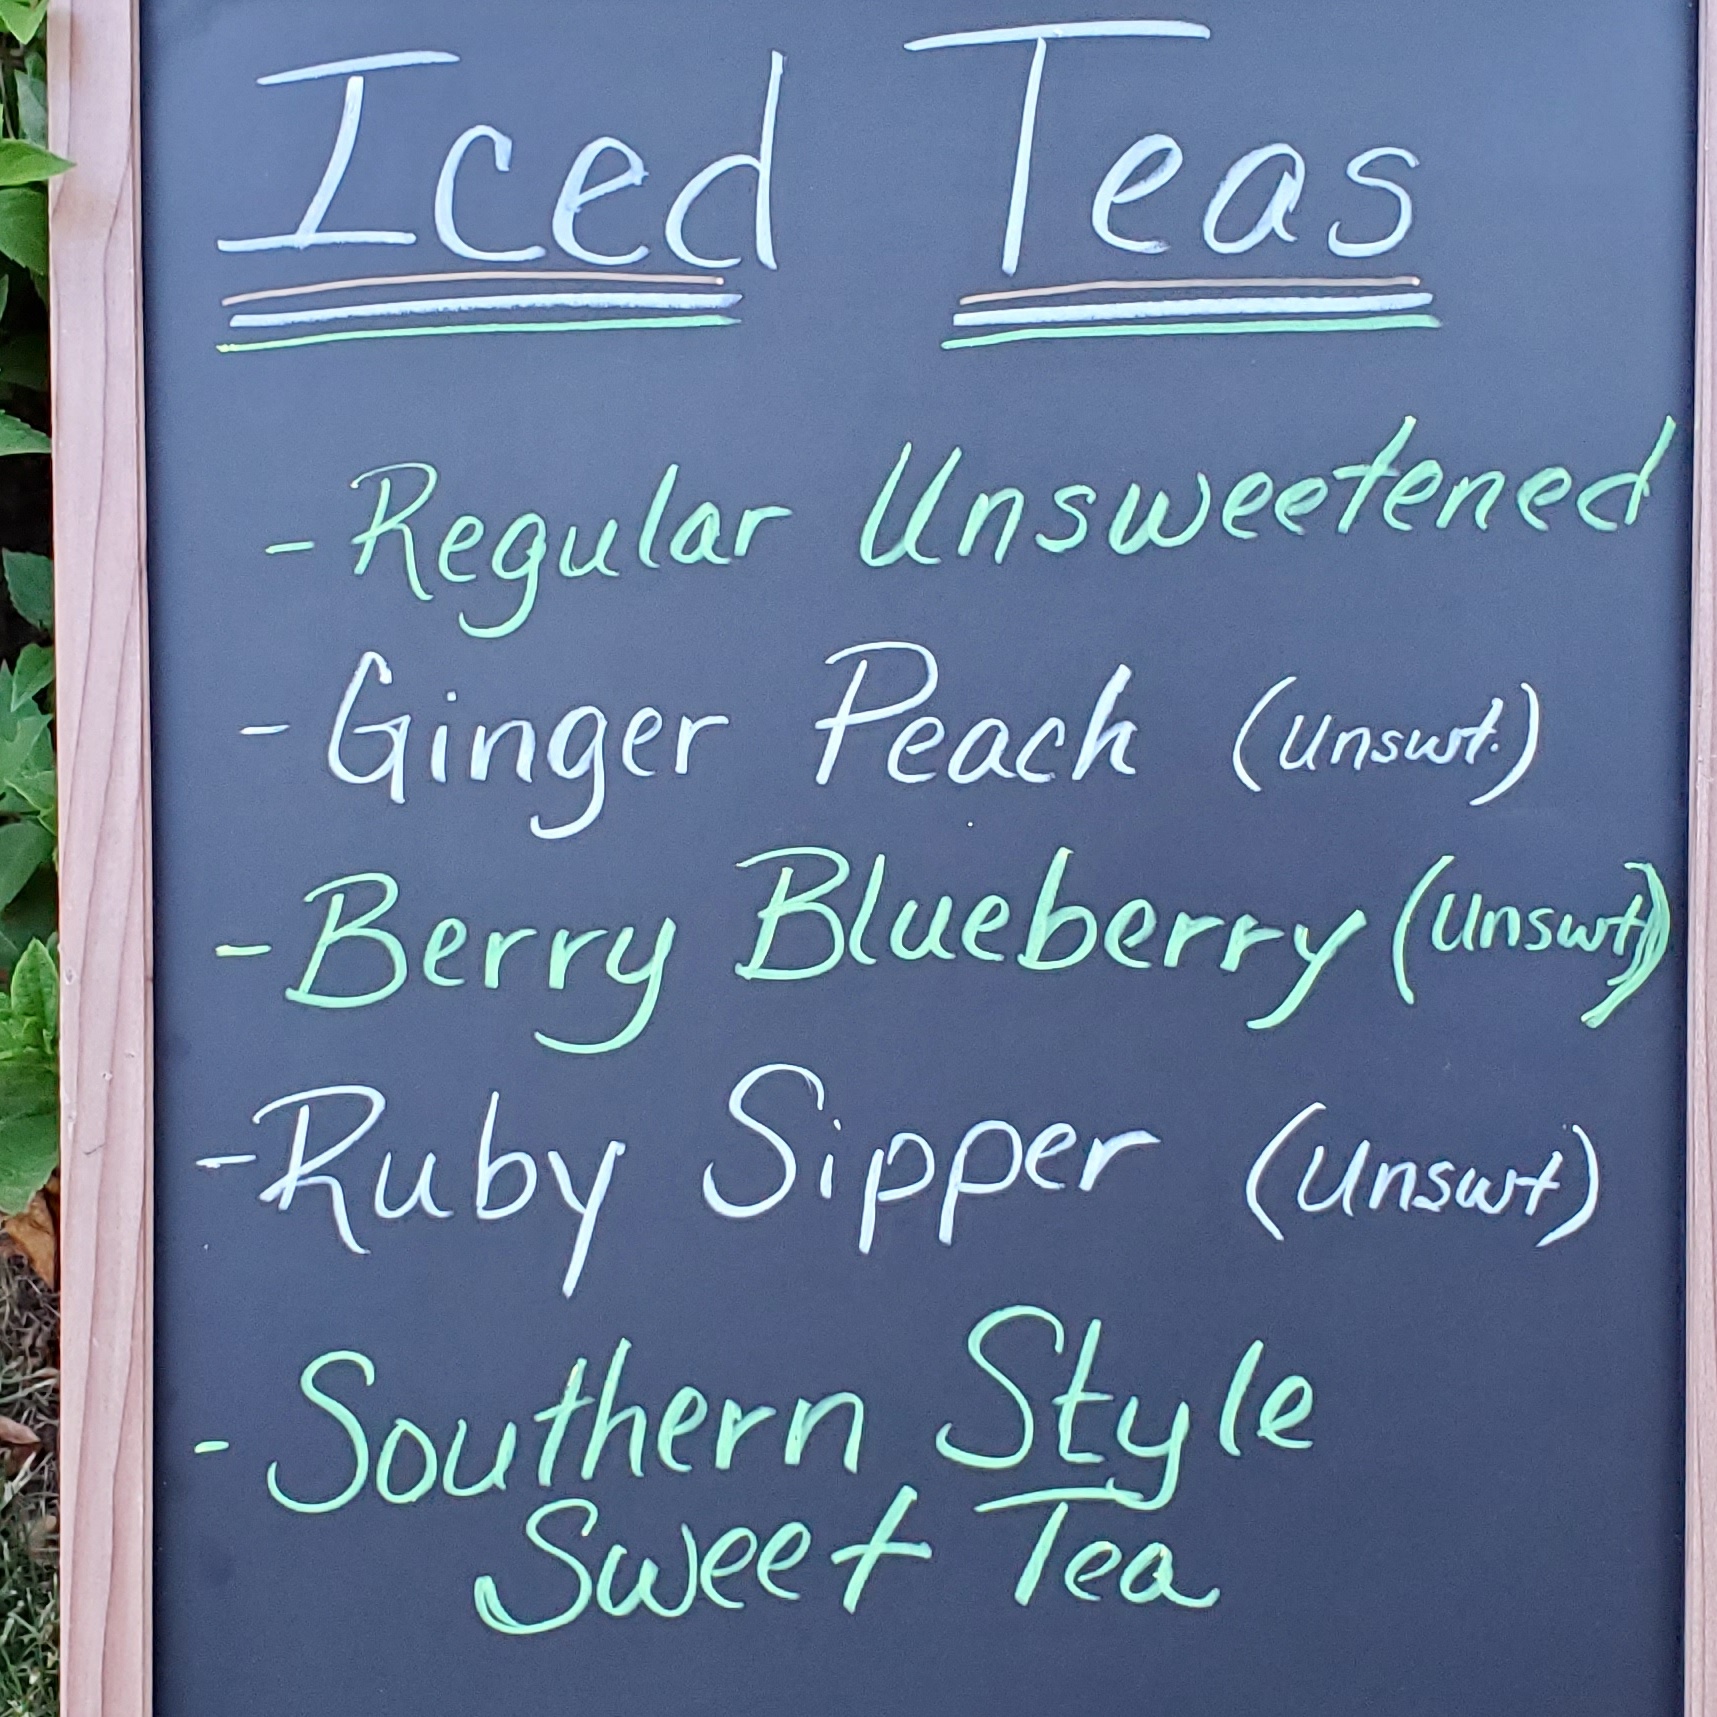 Iced Teas
- Regular Unsweetened
- Ginger Peach (Unswt.)
- Berry Blueberry (Unswt)
- Ruby Sipper (Unswt)
- Southern Style
Sweet Tea